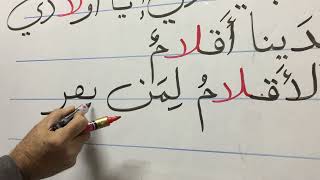 يا أولادي
لدينا أَقلامٌ
الأَقلامُ لِمَن